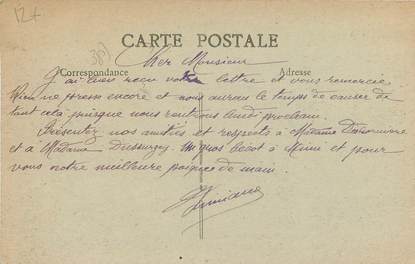 12+
387
CARTE POSTALE
Cher Monsieur
Correspondance
Adresse
J'ai bien reçu votre lettre et vous remercie
Rien ne presse encore et nous aurons le temps de causer de
tout cela puisque nous rentrons lundi prochain.
Présentez nos amitiés et respects à Madame
et à Madame Un gros bécot à Mimi et pour
vous notre meilleure poignée de main.